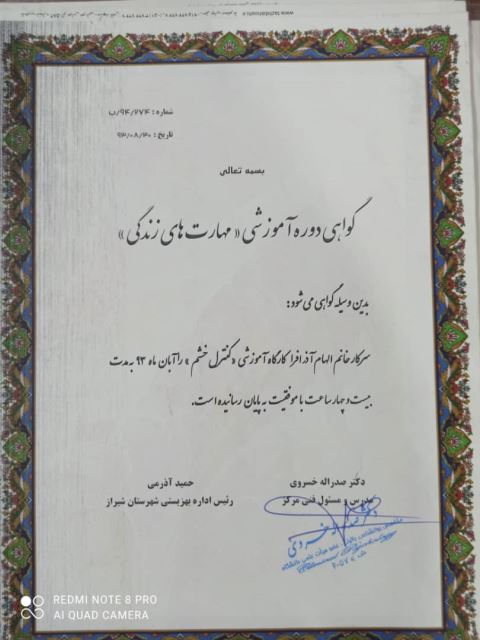 شماره : ۹۴/۲۷۴/ب
تاریخ : ۹۳/۰۸/۳۰
بسمه تعالی
گواهی دوره آموزشی « مهارت های زندگی »
بدین وسیله گواهی می شود :
سرکار خانم الهام آذرافرا کارگاه آموزشی « کنترل خشم » را آبان ماه ۹۳ به مدت
بیست و چهار ساعت با موفقیت به پایان رسانیده است.
دکتر صدراله خسروی
مدرس و مسئول فنی مرکز
حمید آذرمی
رئیس اداره بهزیستی شهرستان شیراز
REDMI NOTE 8 PRO
AI QUAD CAMERA